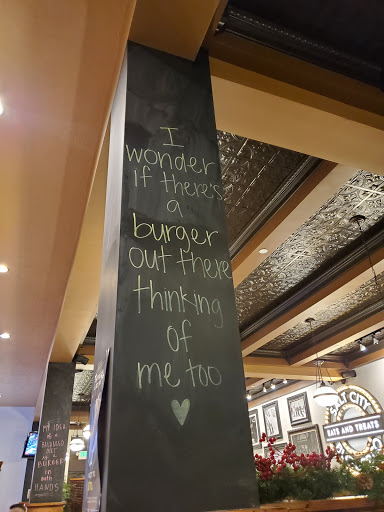 I
wonder
if there's
a
burger
out there
thinking
of
me too
MY IDEA
OF A
BALANCED
DIET IS
A BURGER
IN BOTH
HANDS
CITY
EATS AND TREATS